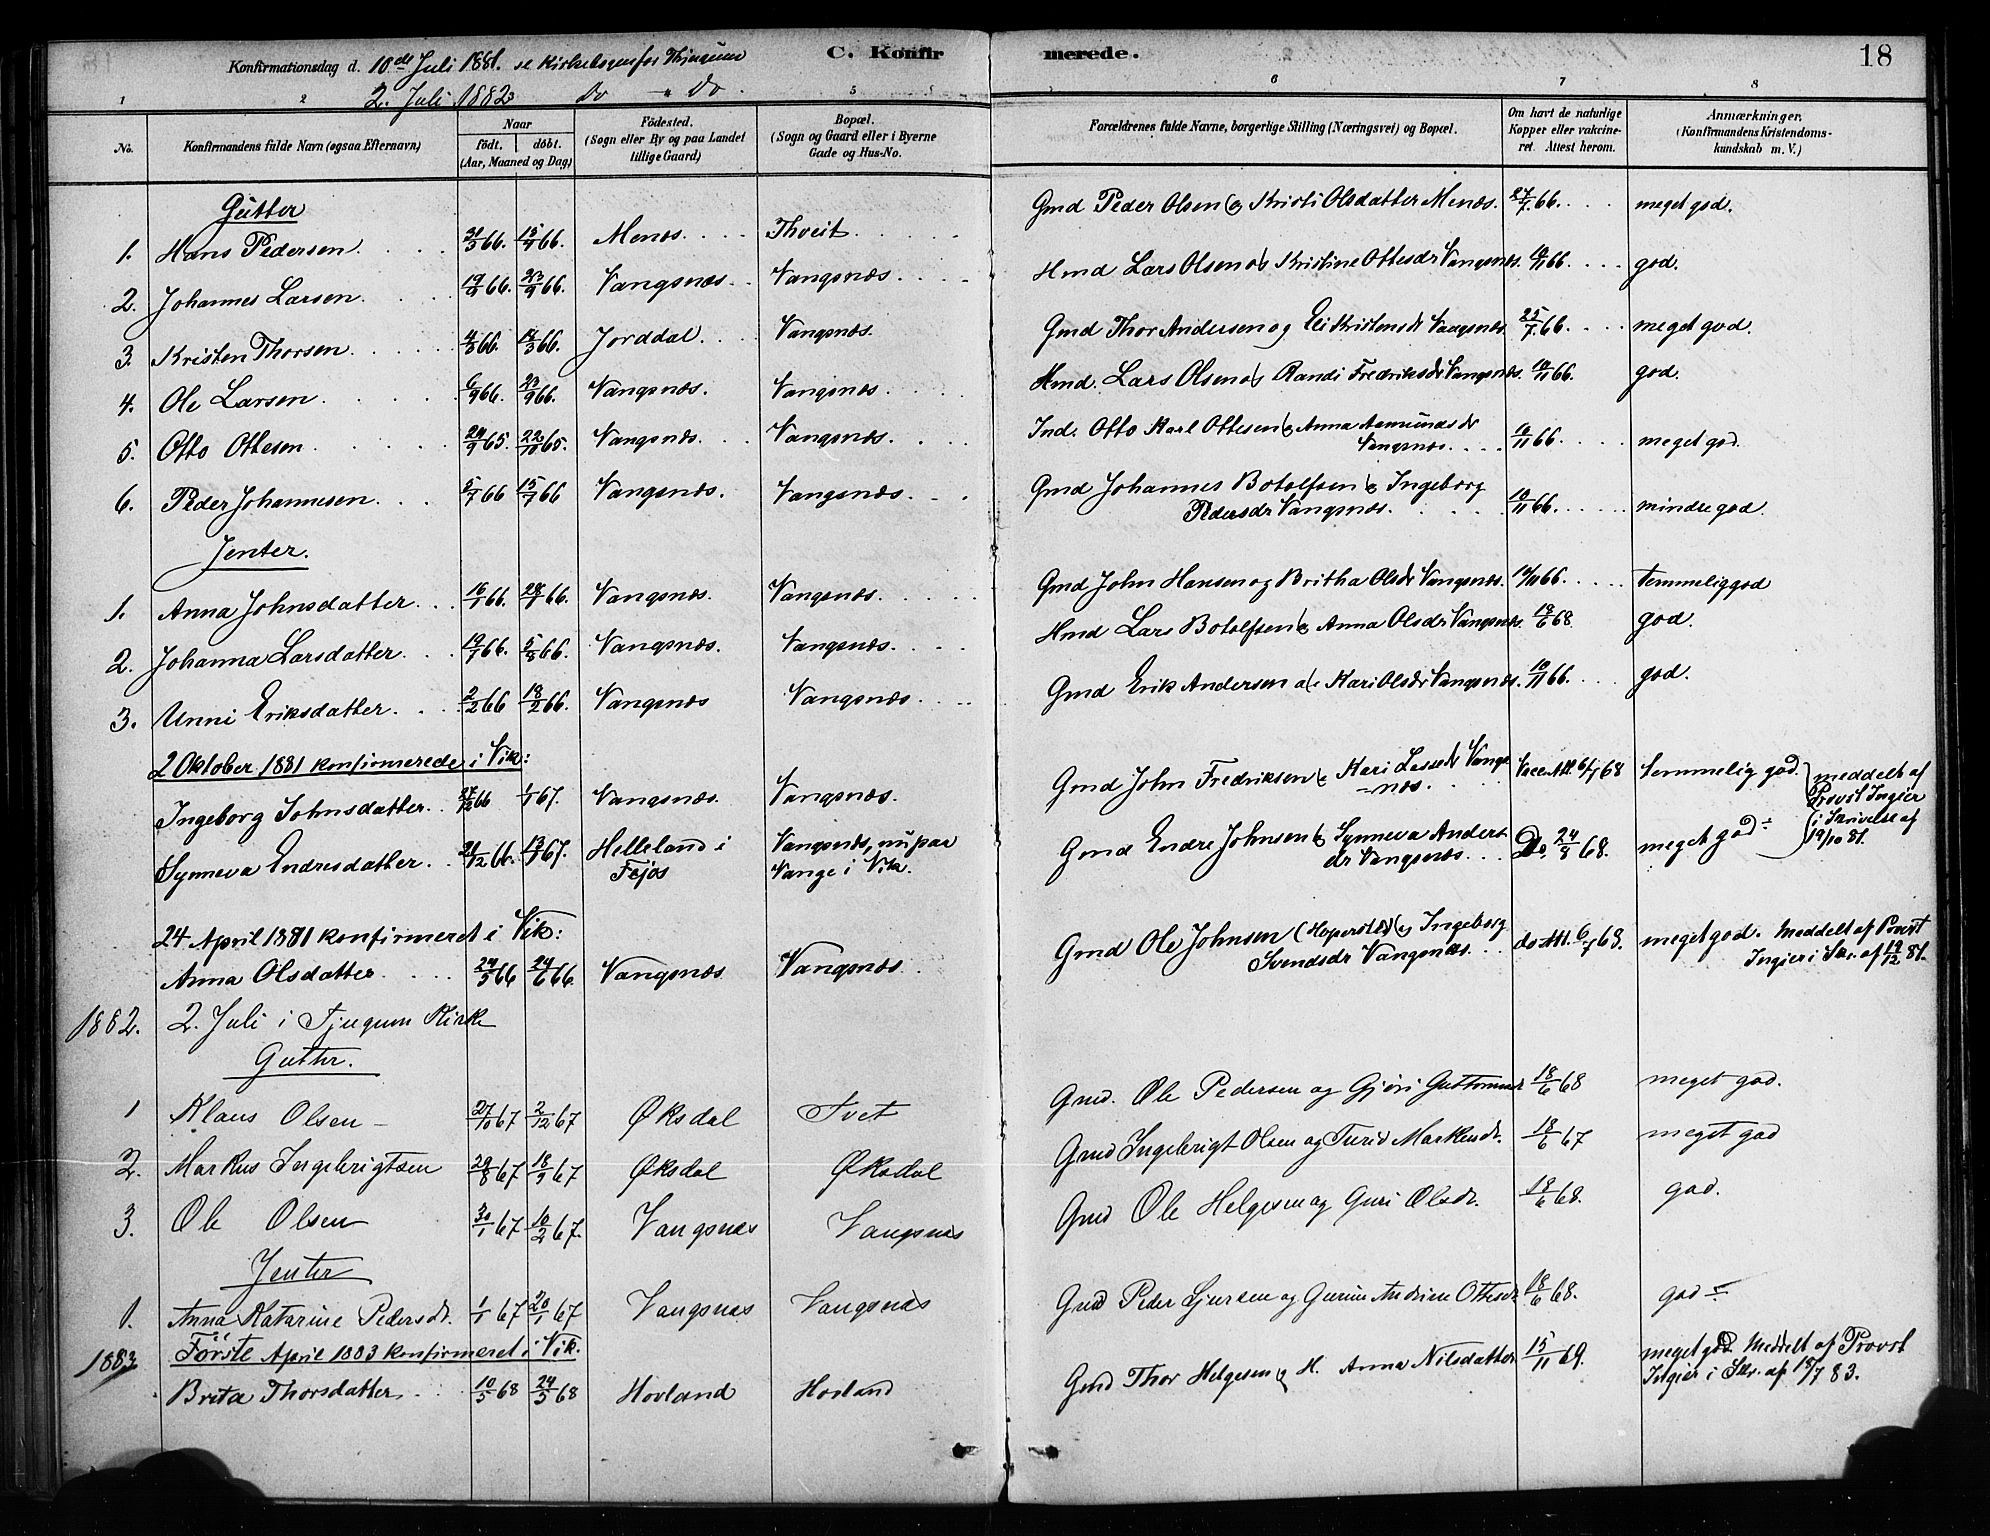 18
Konfirmationsdag d. 10de Juli 1881. se Kirkebogen for Thjugum
C. Konfirmerede.
2. Juli 1882 Do " Do
1 2 5 6 7 8
No.
Konfirmandens fulde Navn (ogsaa Efternavn)
Naar
født. døbt.
(Aar, Maaned og Dag)
Födested.
(Sogn eller By og paa Landet
tillige Gaard)
Bopæl.
(Sogn og Gaard eller i Byerne
Gade og Hus-No.
Forældrenes fulde Navne, borgerlige Stilling (Næringsvei) og Bopæl.
Om havt de naturlige
Kopper eller vakcine-
ret. Attest herom.
Anmærkninger.
(Konfirmandens Kristendoms-
kundskab m. V.)
Gutter
1. Hans Pedersen 31/3 66. 15/4 66. Menes Thveit Gmd Peder Olsen og Kristi Olsdatter Menes. 27/7 66. meget god.
2. Johannes Larsen 19/9 66. 23/9 66. Vangsnæs Vangsnæs Hmd Lars Olsen og Kristine Ottesdr Vangsnæs. 10/11 66. god.
3. Kristen Thorsen 4/3 66. 18/3 66. Jorddal Vangsnæs Gmd Thor Andersen og Eli Kristensdr Vangsnæs. 25/7 66. meget god.
4. Ole Larsen 6/9 66. 23/9 66. Vangsnæs. Vangsnæs Hmd. Lars Olsen og Randi Fredriksdr Vangsnæs. 10/11 66. god.
5. Otto Ottesen 24/9 65. 22/10 65. Vangsnæs. Vangsnæs. Ind. Otto Karl Ottesen og Anna Aamundsdr
Vangsnæs. 10/11 66. meget god.
6. Peder Johannesen 5/7 66 15/7 66 Vangsnæs. Vangsnæs. Gmd Johannes Botolfsen og Ingeborg
Pedersdr Vangsnæs. 10/11 66. mindre god.
Jenter.
1. Anna Johnsdatter 16/1 66. 28/1 66. Vangsnæs. Vangsnæs. Gmd John Hansen og Britha Olsdr Vangsnæs. 10/11 66. temmelig god
2. Johanna Larsdatter. 19/7 66. 5/8 66. Vangsnæs. Vangsnæs. Hmd Lars Botolfsen og Anna Olsdr Vangsnæs. 18/6 68. god.
3. Unni Eriksdatter. 2/2 66 18/2 66. Vangsnæs Vangsnæs. Gmd Erik Andersen og Kari Olsdr Vangsnæs. 10/11 66. god.
2 Oktober 1881 konfirmerede i Vik:
Ingeborg Johnsdatter. 27/12 66 1/1 67. Vangsnæs. Vangsnæs. Gmd John Fredriksen og Kari Lassedr Vangs
-næs. Vacc. Att. 6/7 68 temmelig god. meddelt af
Provst Ingier
i Skrivelse af
19/10 81.
Synneva Endresdatter. 21/12 66. 13/1 67. Helleland i
Fejos Vangsnæs, nu paa
Vange i Vik. Gmd Endre Johnsen og Synneva Anders
dr Vangsnæs. Do. 24/8 68. meget god
24 April 1881 konfirmeret i Vik:
Anna Olsdatter 24/5 66 24/6 66. Vangsnæs Vangsnæs Gmd Ole Johnsen (Hopersted) og Ingeborg
Svendsdr Vangsnæs. do Att. 6/7 68. meget god. Meddelt af Provst
Ingier i Skr. af 19/12 81.
1882. 2. Juli i Tjugum Kirke
Gutter.
1 Klaus Olsen 27/10 67 2/12 67 Øksdal Tvet Gmd. Ole Pedersen og Gjøri Guttormsdr 18/6 68 meget god.
2. Markus Ingebrigtsen 29/8 67 18/9 67 Øksdal Øksdal Gmd Ingebrigt Olsen og Turid Markusdr. 18/6 67 meget god
3. Ole Olsen 30/1 67 10/2 67. Vangsnæs Vangsnæs Gmd Ole Helgesen og Guri Olsdr. 18/6 68. god.
Jenter
1. Anna Katarine Pedersdr. 1/1 67 20/1 67 Vangsnæs Vangsnæs Gmd Peder Sjursen og Gurine Andrine Ottesdr 18/6 68. god
1883 Förste April 1883 konfirmeret i Vik.
Brita Thorsdatter 10/5 68 24/5 68 Hovland Hovland Gmd Thor Helgesen og H. Anna Nilsdatter 15/11 69. meget god. Meddelt af Provst
Ingier i Skr. af 18/7 83.